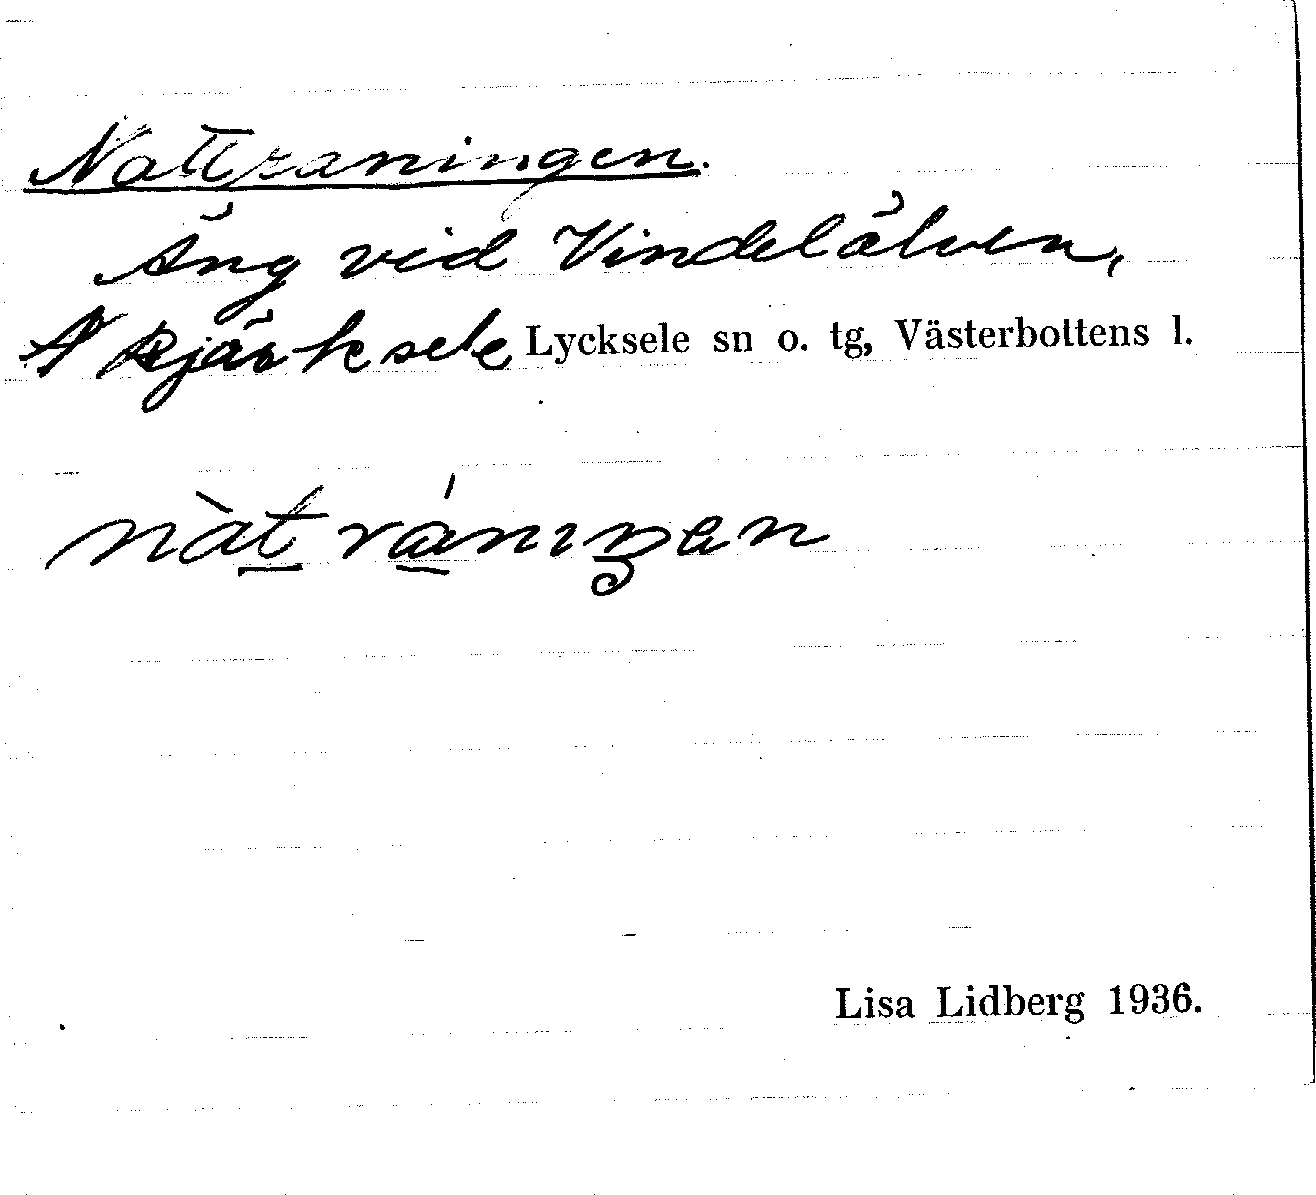 Nattraningen.
Äng vid Vindelälven,
Lycksele sn o. tg, Västerbottens l.
nàt rániŋen
Lisa Lidberg 1936.